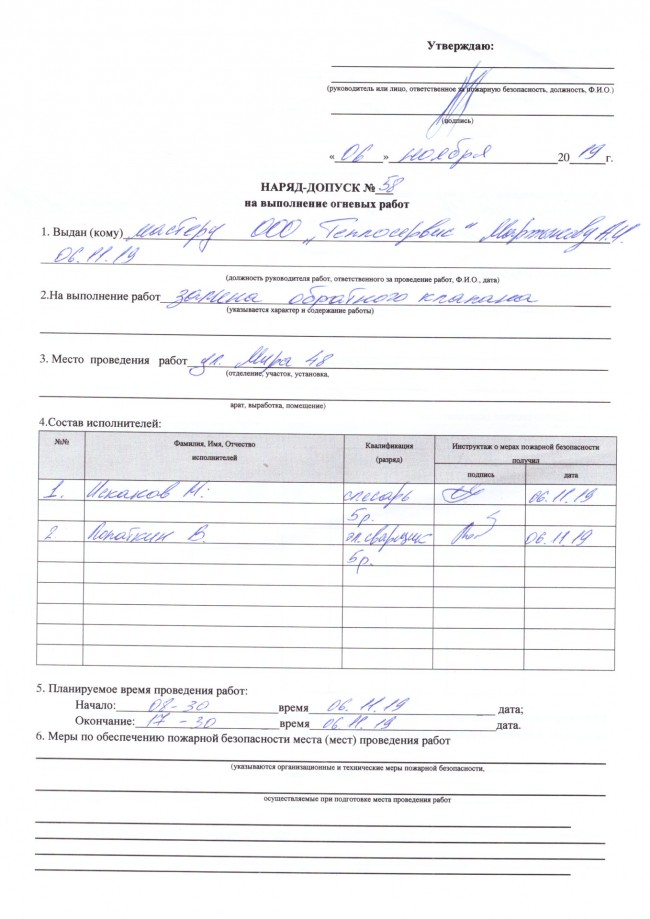 Утверждаю:
(руководитель или лицо, ответственное за пожарную безопасность, должность, Ф.И.О.)
(подпись)
« 06 » ноября 20 19 г.
НАРЯД-ДОПУСК № 58
на выполнение огневых работ
1. Выдан (кому) мастеру ООО „Теплосервис"
06.11.19
(должность руководителя работ, ответственного за проведение работ, Ф.И.О., дата)
2.На выполнение работ замена обратного клапана
(указывается характер и содержание работы)
3. Место проведения работ ул. Мира 48
(отделение, участок, установка,
арат, выработка, помещение)
4.Состав исполнителей:
№№ Фамилия, Имя, Отчество исполнителей Квалификация (разряд) Инструктаж о мерах пожарной безопасности получил
подпись дата
1. Искаков М. слесарь 06.11.19
5р.
2 Лопаткин В. эл.сварщик 06.11.19
5р.
5. Планируемое время проведения работ:
Начало: 08-30 время 06.11.19 дата;
Окончание: 17-30 время 06.11.19 дата.
6. Меры по обеспечению пожарной безопасности места (мест) проведения работ
(указываются организационные и технические меры пожарной безопасности,
осуществляемые при подготовке места проведения работ